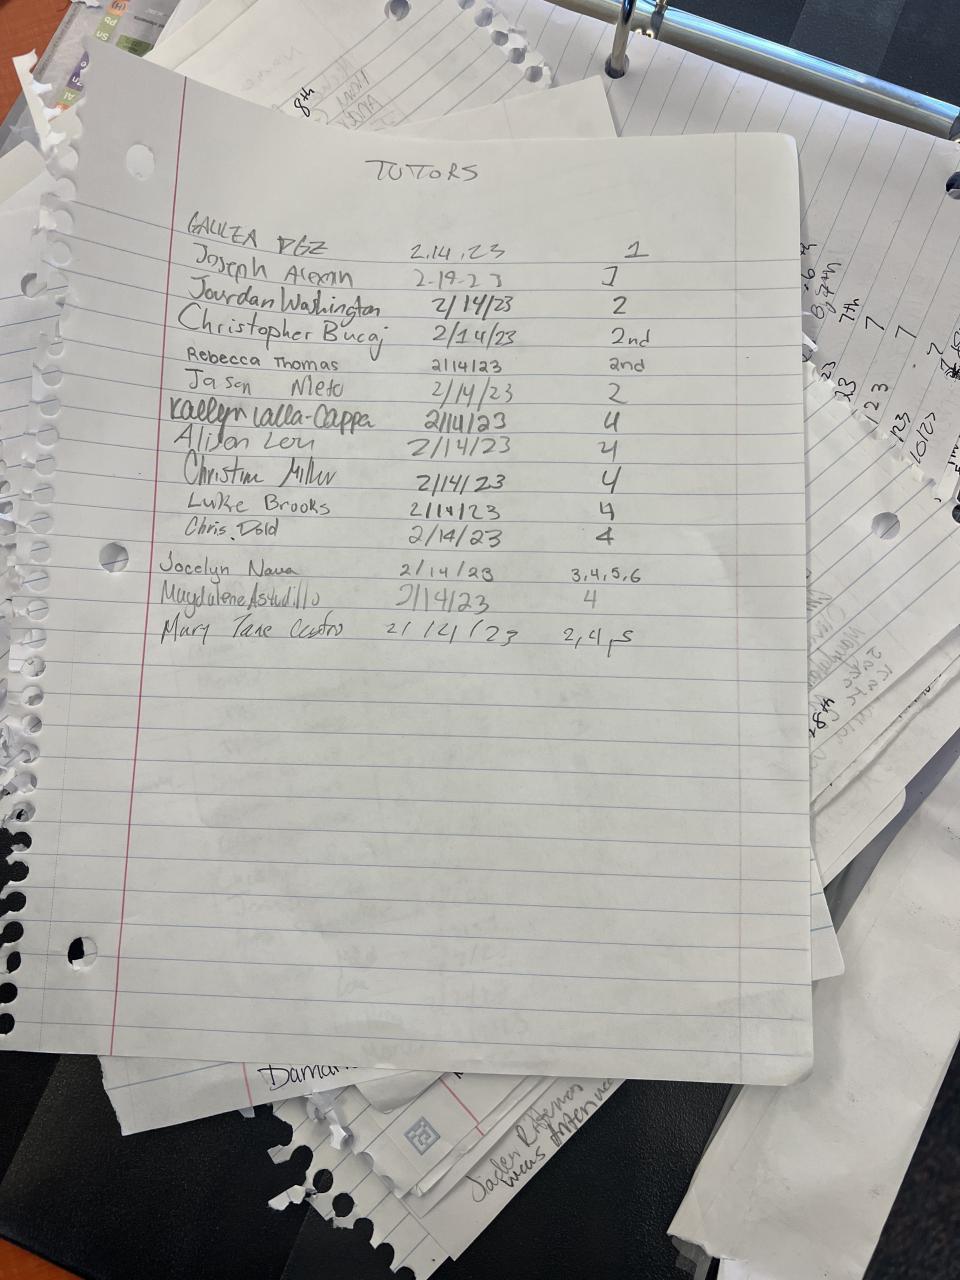 TUTORS
GALILEA DGZ 2.14.23 1
Joseph 2-14-23 1
Jourdan Washington 2/14/23 2
Christopher Bucaj 2/14/23 2nd
Rebecca Thomas 2/14/23 2nd
Jason 2/14/23 2
Kaelyn Lalla-Cappa 2/14/23 4
Alison 2/14/23 4
Christine Miller 2/14/23 4
Luke Brooks 2/14/23 4
Chris Dold 2/14/23 4
Jocelyn Nava 2/14/23 3,4,5,6
Magdalene Astudillo 2/14/23 4
Mary Jane Castro 2/14/23 2,4,5
8th
7th
7
7
23
123
10/2
8th
Sn
Pb